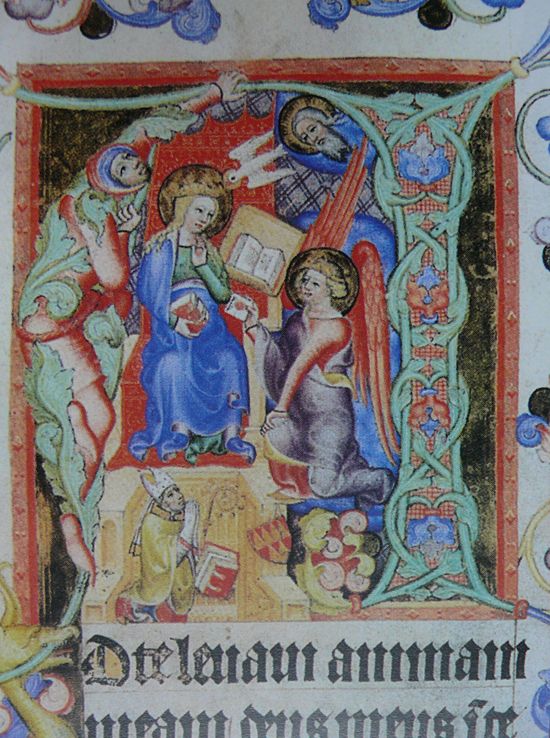 AD te leuaui animam
meam deus meus ī te